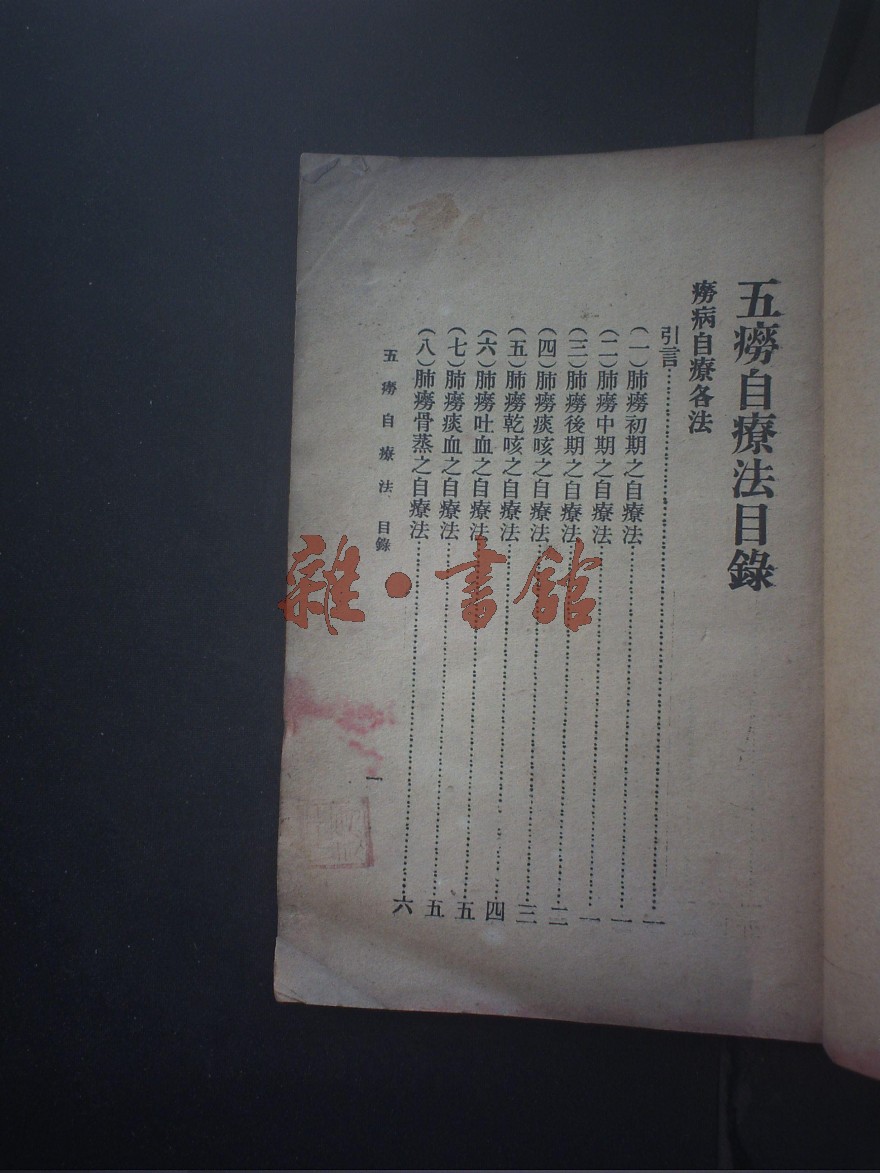 五癆自療法目錄
癆病自療各法
引言……一
(一)肺癆初期之自療法……一
(二)肺癆中期之自療法……一
(三)肺癆後期之自療法……二
(四)肺癆痰咳之自療法……三
(五)肺癆乾咳之自療法……四
(六)肺癆吐血之自療法……五
(七)肺癆痰血之自療法……五
(八)肺癆骨蒸之自療法……六
五癆自療法 目錄
一
雜·書館